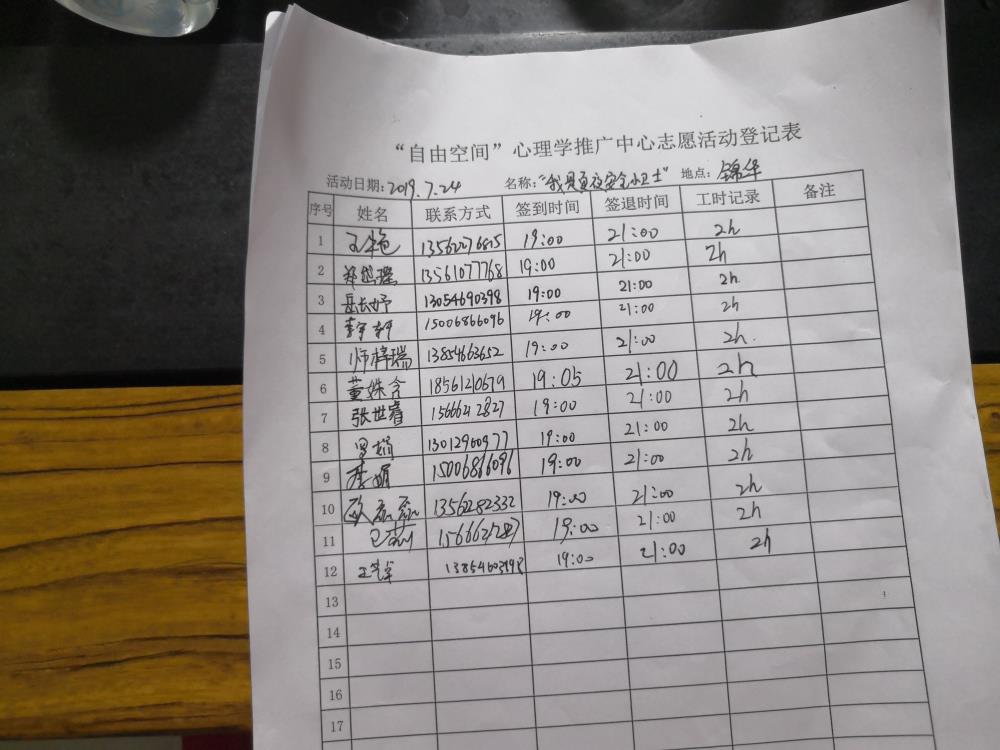 “自由空间”心理学推广中心志愿活动登记表
活动日期:2019.7.24 名称:“我是夏夜安全小卫士” 地点:锦华
序号 姓名 联系方式 签到时间 签退时间 工时记录 备注
1 王艳 13562276815 19:00 21:00 2h
2 13561077768 19:00 21:00 2h
3 岳长妤 13054690398 19:00 21:00 2h
4 15006866096 19:00 21:00 2h
5 师梓瑞 13854663652 19:00 21:00 2h.
6 董姝含 18561210679 19:05 21:00 2h
7 张世睿 1566642827 19:00 21:00 2h
8 13012960977 19:00 21:00 2h
9 李娟 15006866096 19:00 21:00 2h
10 欧磊磊 1356282332 19:00 21:00 2h
11 19:00 21:00 2h
12 19:00 21:00 2h
13
14
15
16
17